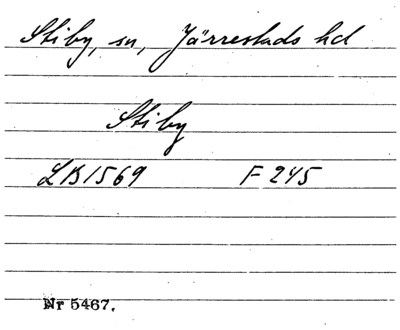 Stiby, sn, Järrestads hd
Stiby
LB1569 F 245
Nr 5467.